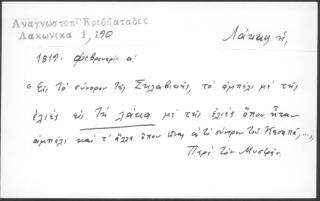 Αναγνωστοπ Κρεββαταδες
Λακωνικα 1, 190
Λάκκα ἡ,
1819. Φεβρουαρίου α:
"Εἰς τὸ σύνορον τῆς Σκλαβικῆς, τὸ ἀμπέλι μὲ τῆς
ἐλιὲς εἰς τὴ λάκα μὲ τῆς ἐλιὲς ὅπου ἦταν
ἀμπέλι καὶ τ' ἄλλα ὅπου εἶναι εἰς τὸ σύνορον τοῦ ...,
Περὶ τὸν Μυστρᾶν.